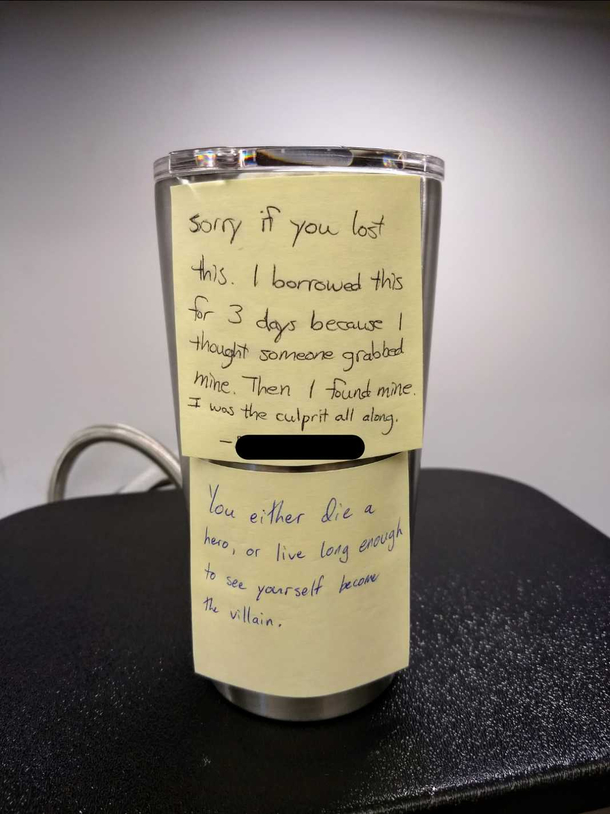 Sorry if you lost
this. I borrowed this
for 3 days because I
thought someone grabbed
mine. Then I found mine.
I was the culprit all along.
–
You either die a
hero, or live long enough
to see yourself become
the villain.